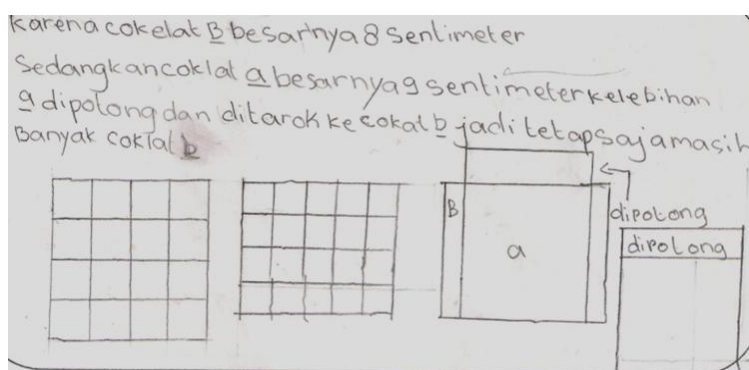 karena cokelat B besarnya 8 Sentimeter
Sedangkan coklat a besarnya 9 sentimeter kelebihan
a dipotong dan ditarok ke cokat b jadi tetap saja masih
Banyak coklat b
B
a
dipotong
dipotong